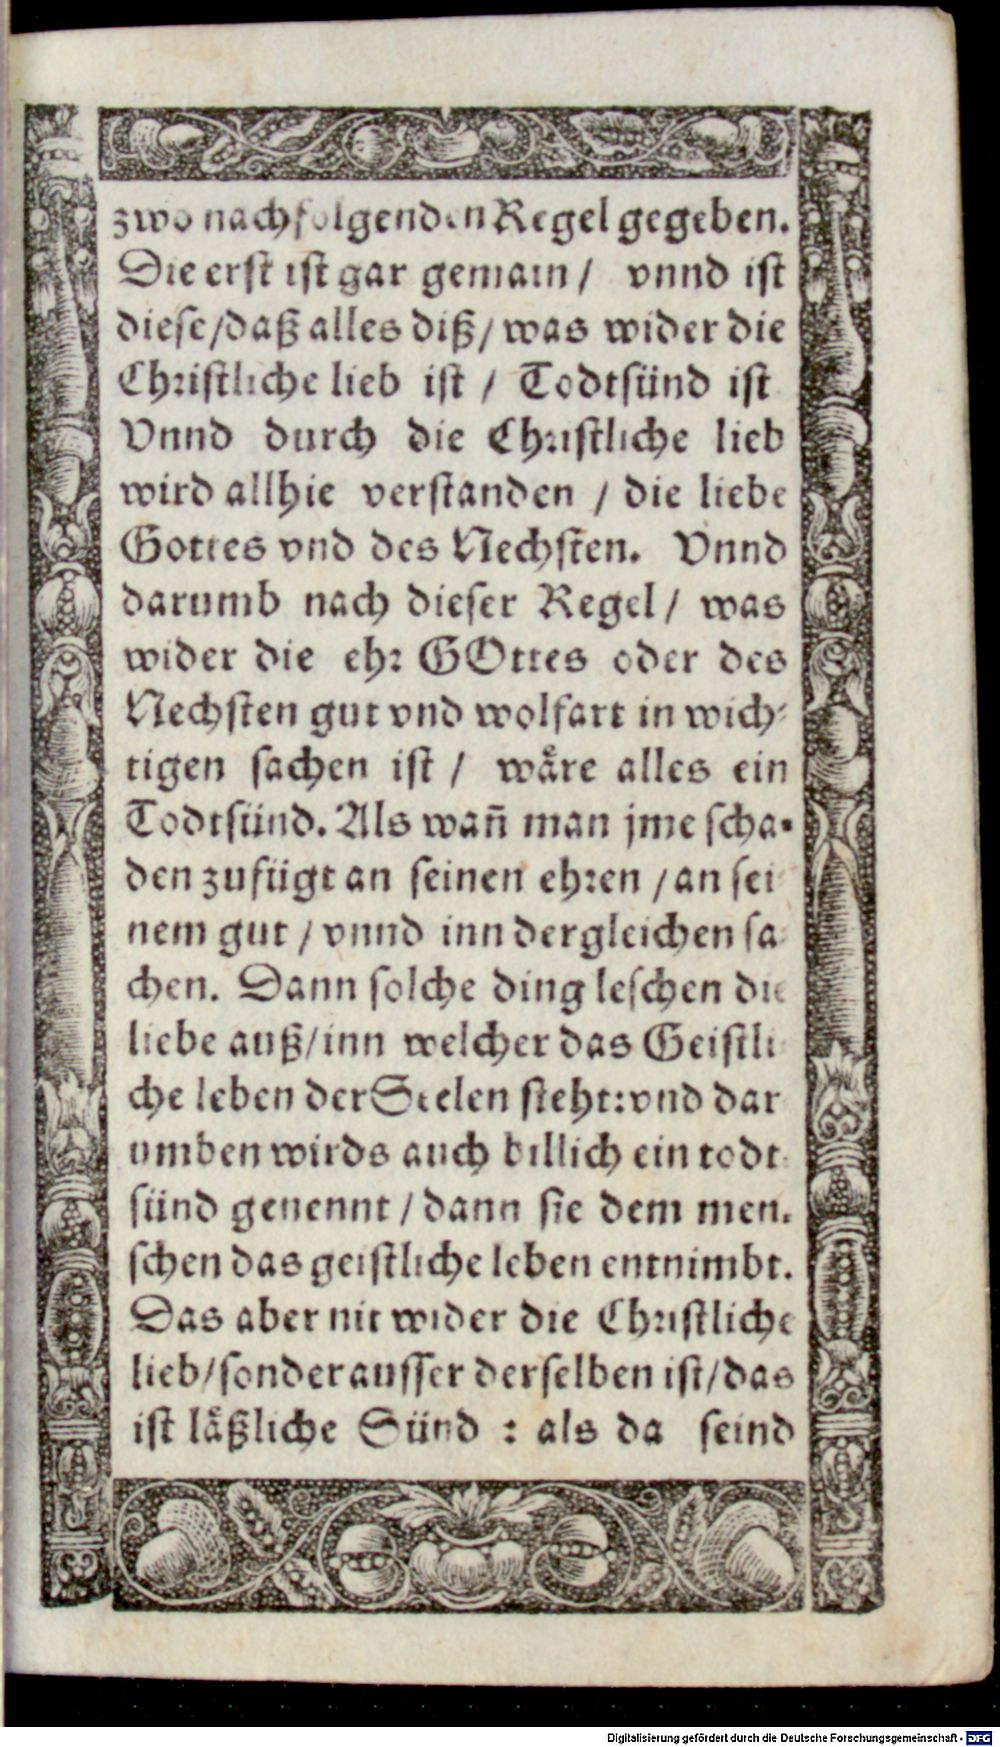 zwo nachfolgenden Regel gegeben.
Die erst ist gar gemain / vnnd ist
diese/daß alles diß/ was wider die
Christliche lieb ist / Todtsünd ist
Vnnd durch die Christliche lieb
wird allhie verstanden / die liebe
Gottes vnd des Nechsten. Vnnd
darumb nach dieser Regel/ was
wider die ehr GOttes oder des
Nechsten gut vnd wolfart in wich-
tigen sachen ist / wåre alles ein
Todtsünd. Als wañ man jme scha-
den zufügt an seinen ehren /an sei
nem gut / vnnd inn dergleichen sa
chen. Dann solche ding leschen die
liebe auß/inn welcher das Geistli
che leben der Seelen steht:vnd dar
umben wirds auch billich ein todt
sünd genennt / dann sie dem men.
schen das geistliche leben entnimbt.
Das aber nit wider die Christliche
lieb/sonder ausser derselben ist/das
ist låßliche Sünd : als da seind
Digitalisierung gefördert durch die Deutsche Forschungsgemeinschaft - DFG